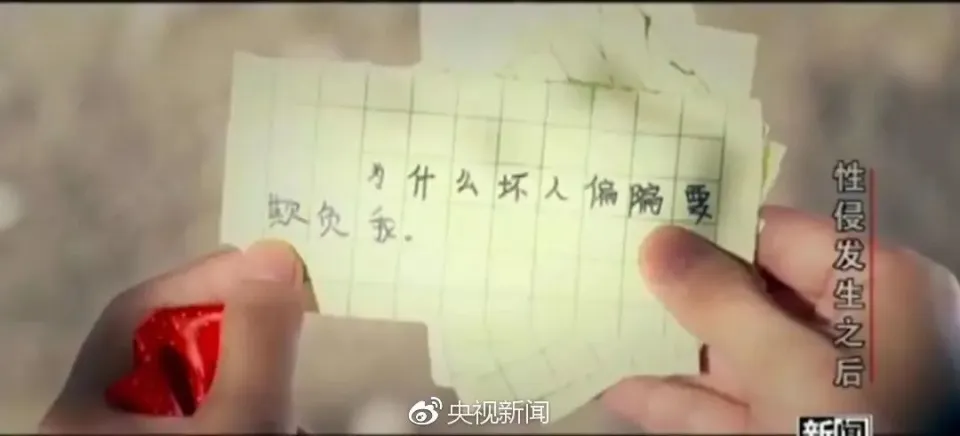 为什么坏人偏偏要
欺负我.
性侵发生之后
央视新闻
新闻